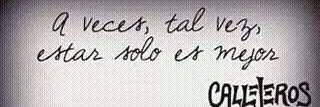 A veces, tal vez,
estar solo es mejor
CALLEJEROS